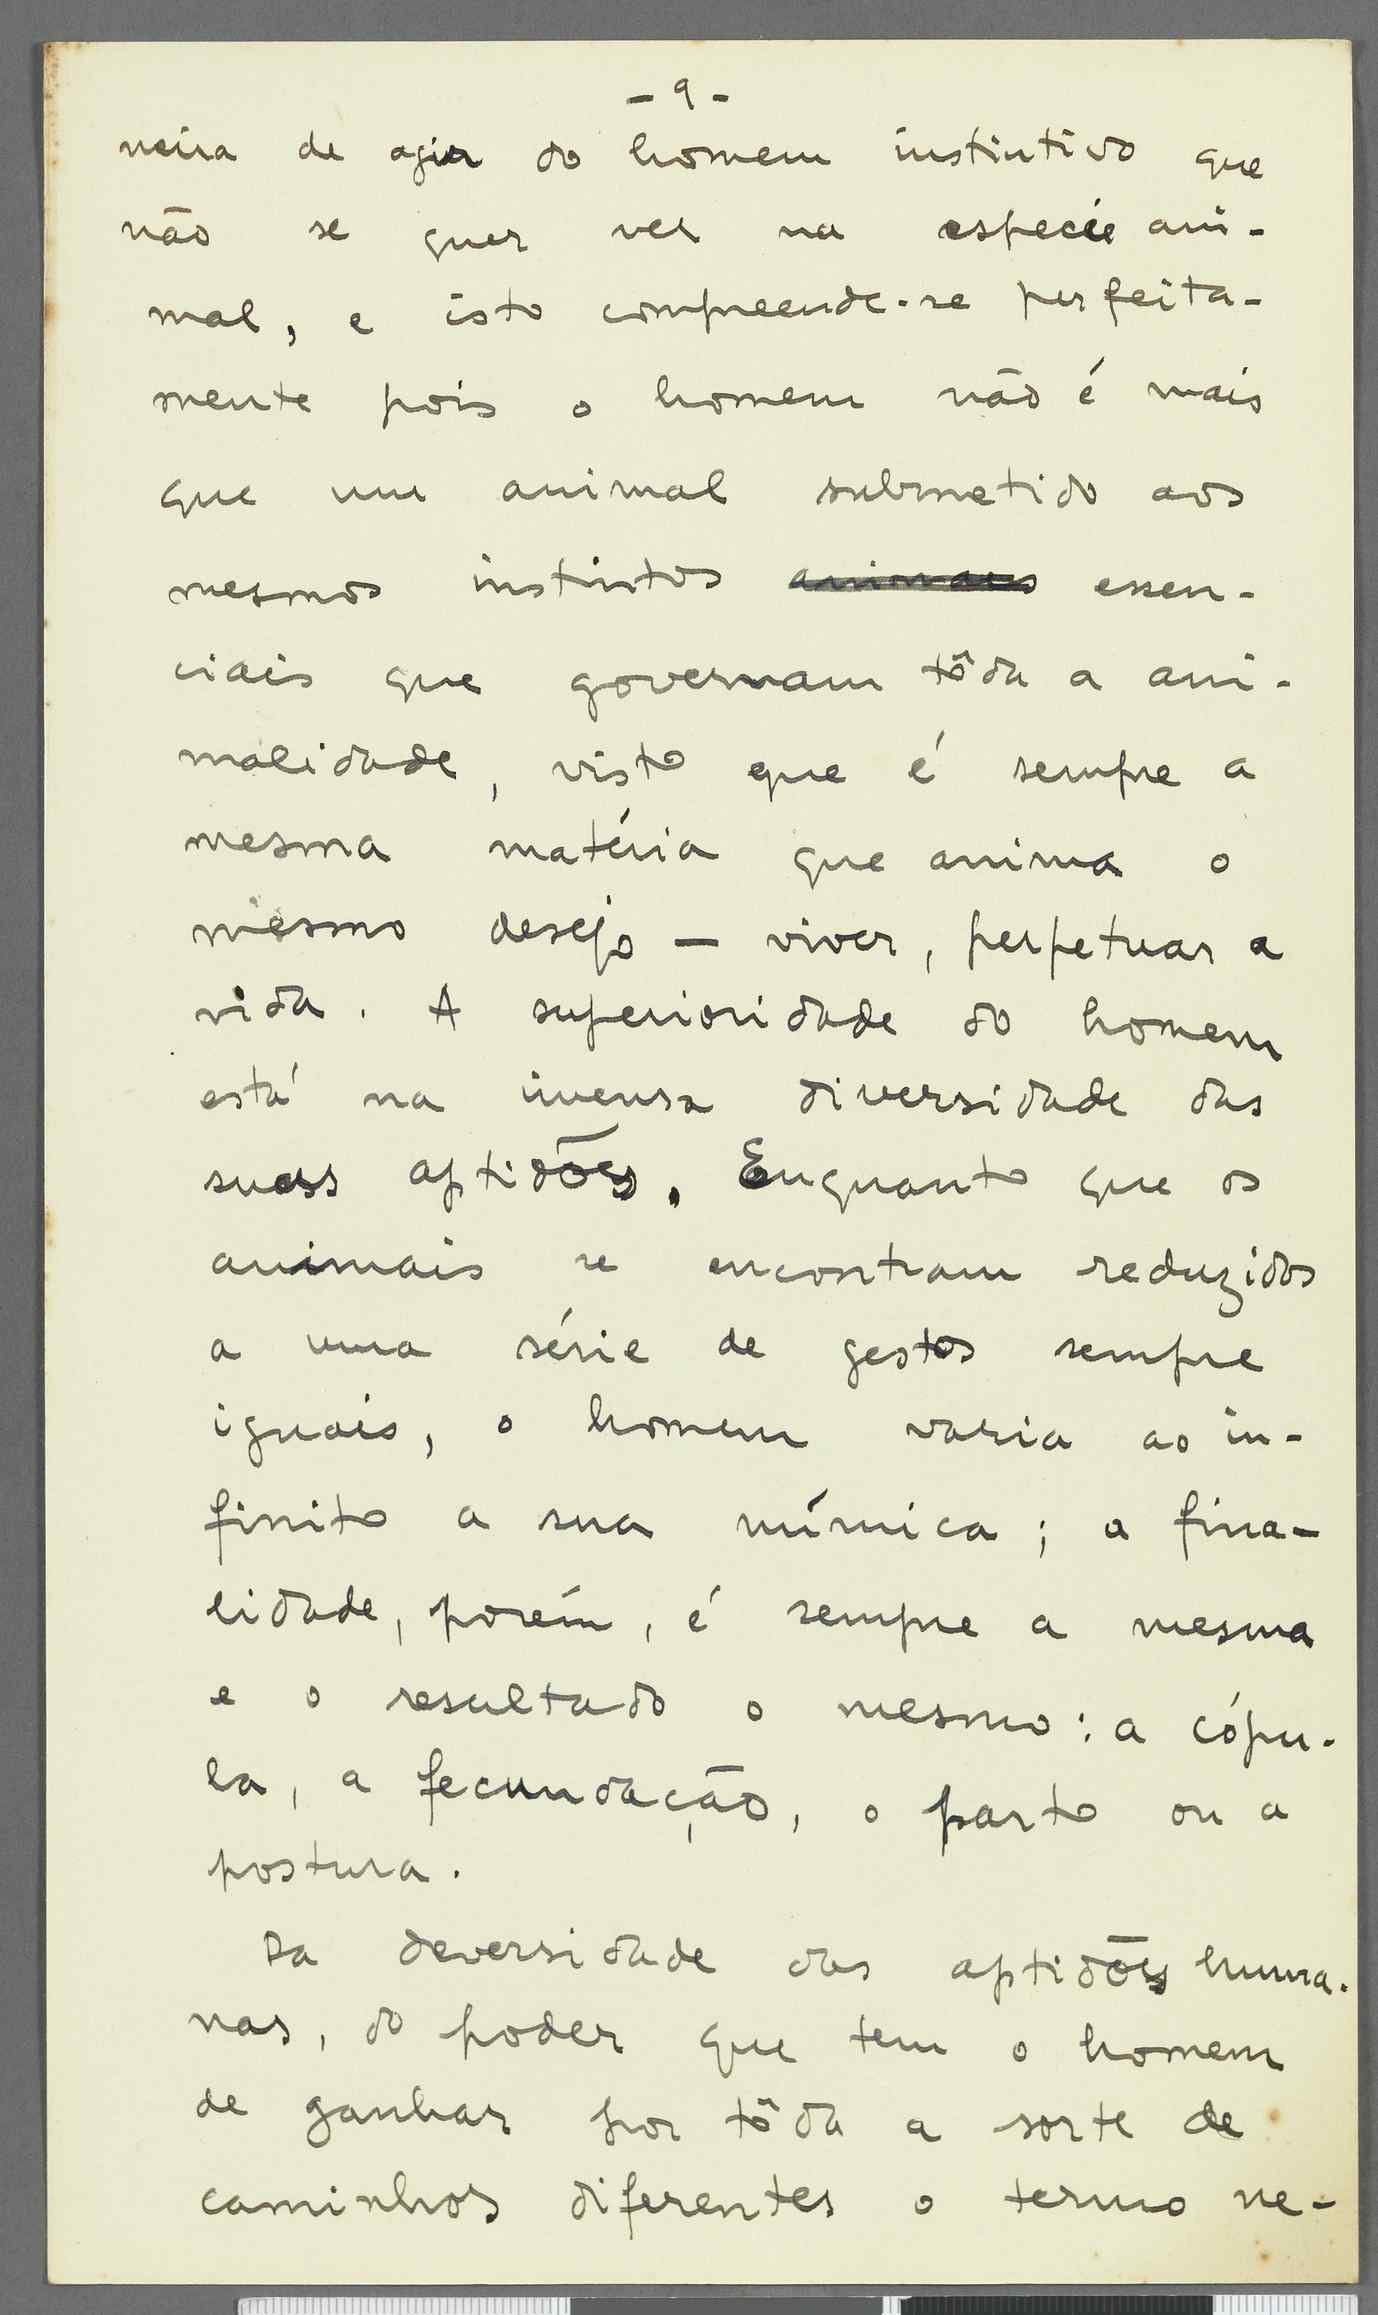 - 9 -
neira de agir do homem instintivo que
não se quer ver na espécie ani-
mal, e isto compreende-se perfeita-
mente pois o homem não é mais
que um animal submetido aos
mesmos instintos animais essen-
ciais que governam tôda a ani-
malidade, visto que é sempre a
mesma matéria que anima o
mesmo desejo — viver, perpetuar a
vida. A superioridade do homem
está na imensa diversidade das
suas aptidões. Enquanto que os
animais se encontram reduzidos
a uma série de gestos sempre
iguais, o homem varia ao in-
finito a sua mímica; a fina-
lidade, porém, é sempre a mesma
e o resultado o mesmo: a cópu-
la, a fecundação, o parto ou a
postura.
Da deversidade das aptidões huma-
nas, do poder que tem o homem
de ganhar por tôda a sorte de
caminhos diferentes o termo ne-